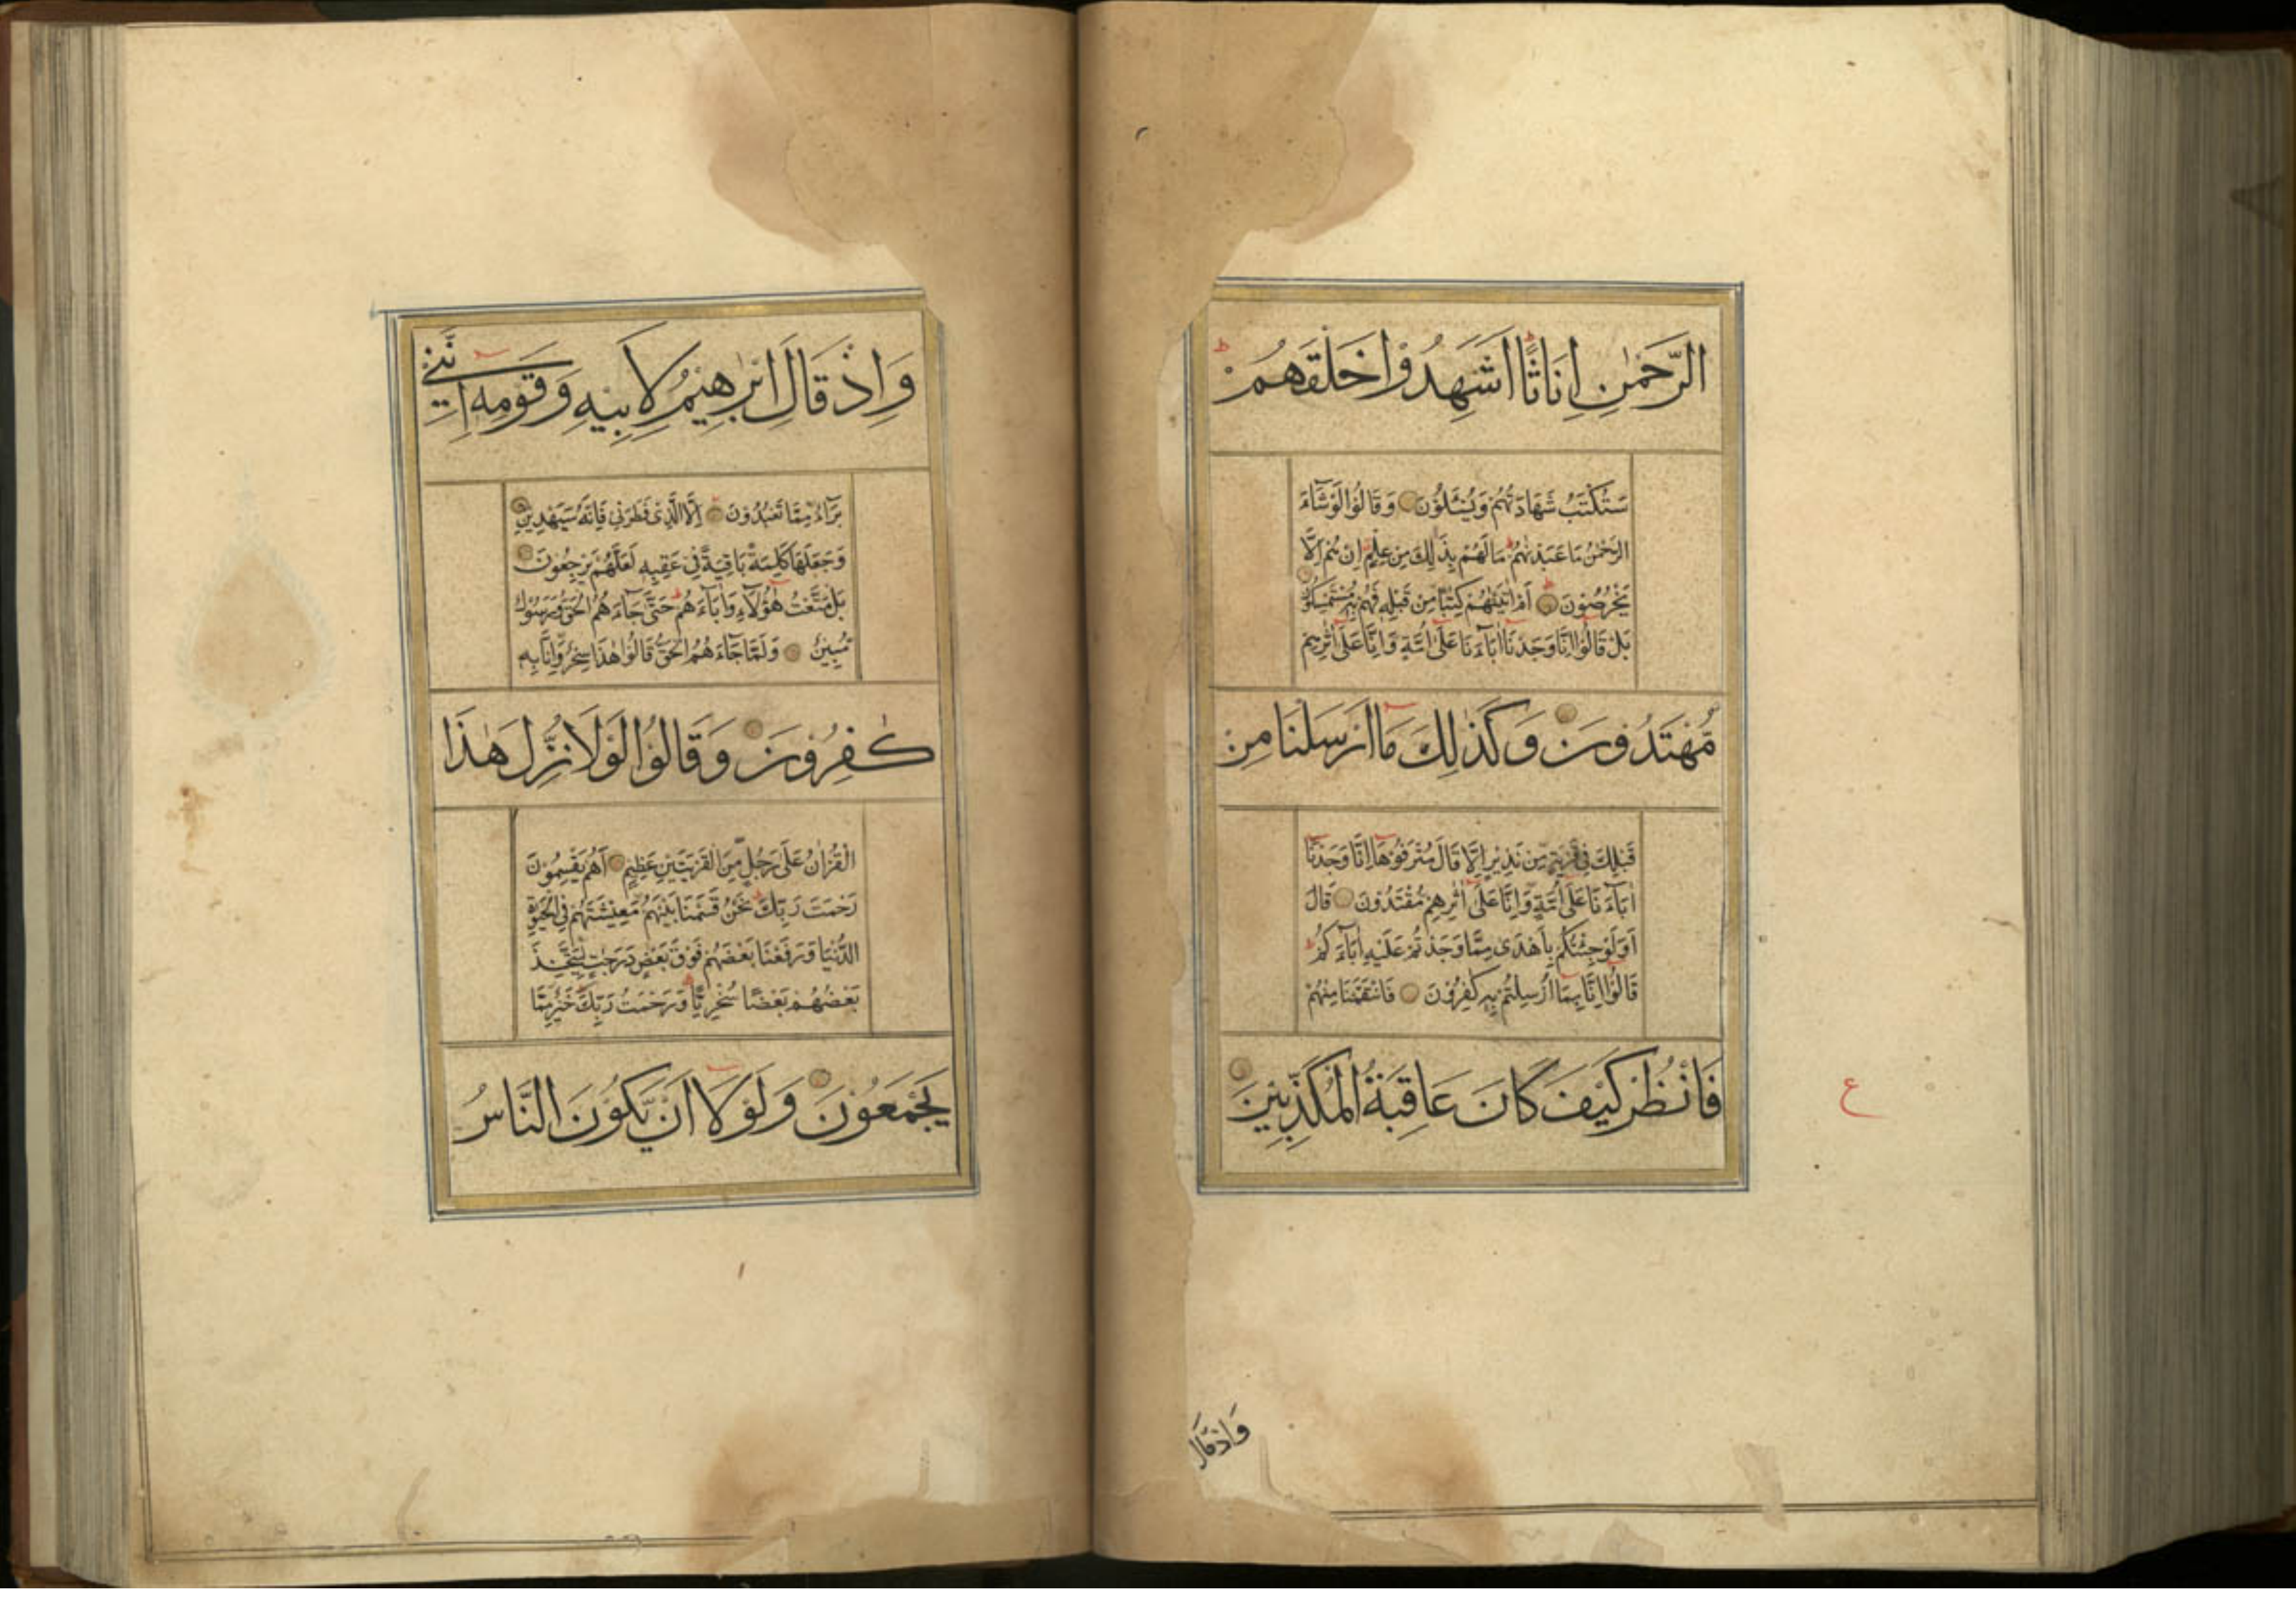 الرَّحْمٰنِ اِنَاثًا اَشَهِدُوْا خَلْقَهُمْ ط
سَتُكْتَبُ شَهَادَتُهُمْ وَيُسْـَٔلُوْنَ وَقَالُوْا لَوْ شَآءَ
الرَّحْمٰنُ مَا عَبَدْنٰهُمْ مَا لَهُمْ بِذٰلِكَ مِنْ عِلْمٍ اِنْ هُمْ اِلَّا
يَخْرُصُوْنَ اَمْ اٰتَيْنٰهُمْ كِتٰبًا مِنْ قَبْلِهٖ فَهُمْ بِهٖ مُسْتَمْسِكُوْنَ
بَلْ قَالُوْٓا اِنَّا وَجَدْنَآ اٰبَآءَنَا عَلٰٓى اُمَّةٍ وَاِنَّا عَلٰٓى اٰثٰرِهِمْ
مُّهْتَدُوْنَ وَكَذٰلِكَ مَآ اَرْسَلْنَا مِنْ
قَبْلِكَ فِيْ قَرْيَةٍ مِّنْ نَذِيْرٍ اِلَّا قَالَ مُتْرَفُوْهَآ اِنَّا وَجَدْنَآ
اٰبَآءَنَا عَلٰٓى اُمَّةٍ وَّاِنَّا عَلٰٓى اٰثٰرِهِمْ مُقْتَدُوْنَ قَالَ
اَوَلَوْ جِئْتُكُمْ بِاَهْدٰى مِمَّا وَجَدْتُمْ عَلَيْهِ اٰبَآءَكُمْ ط
قَالُوْٓا اِنَّا بِمَآ اُرْسِلْتُمْ بِهٖ كٰفِرُوْنَ فَانْتَقَمْنَا مِنْهُمْ
فَانْظُرْ كَيْفَ كَانَ عَاقِبَةُ الْمُكَذِّبِيْنَ
ع
وَاِذْ قَالَ
وَاِذْ قَالَ اِبْرٰهِيْمُ لِاَبِيْهِ وَقَوْمِهٖٓ اِنَّنِيْ
بَرَآءٌ مِّمَّا تَعْبُدُوْنَ اِلَّا الَّذِيْ فَطَرَنِيْ فَاِنَّهٗ سَيَهْدِيْنِ
وَجَعَلَهَا كَلِمَةً بَاقِيَةً فِيْ عَقِبِهٖ لَعَلَّهُمْ يَرْجِعُوْنَ
بَلْ مَتَّعْتُ هٰٓؤُلَآءِ وَاٰبَآءَهُمْ حَتّٰى جَآءَهُمُ الْحَقُّ وَرَسُوْلٌ
مُّبِيْنٌ وَلَمَّا جَآءَهُمُ الْحَقُّ قَالُوْا هٰذَا سِحْرٌ وَّاِنَّا بِهٖ
كٰفِرُوْنَ وَقَالُوْا لَوْلَا نُزِّلَ هٰذَا
الْقُرْاٰنُ عَلٰى رَجُلٍ مِّنَ الْقَرْيَتَيْنِ عَظِيْمٍ اَهُمْ يَقْسِمُوْنَ
رَحْمَتَ رَبِّكَ نَحْنُ قَسَمْنَا بَيْنَهُمْ مَّعِيْشَتَهُمْ فِي الْحَيٰوةِ
الدُّنْيَا وَرَفَعْنَا بَعْضَهُمْ فَوْقَ بَعْضٍ دَرَجٰتٍ لِّيَتَّخِذَ
بَعْضُهُمْ بَعْضًا سُخْرِيًّا وَرَحْمَتُ رَبِّكَ خَيْرٌ مِّمَّا
يَجْمَعُوْنَ وَلَوْلَآ اَنْ يَّكُوْنَ النَّاسُ